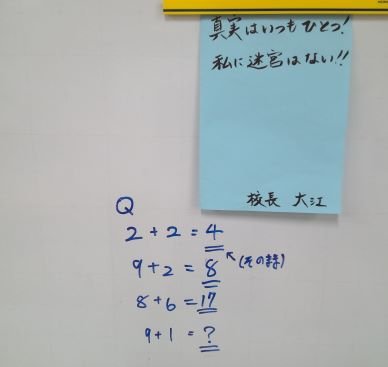 真実はいつもひとつ!
私に迷宮はない!!
校長 大江
Q
2+2=4
9+2=8 ↖(そのまま)
8+6=17
9+1=?